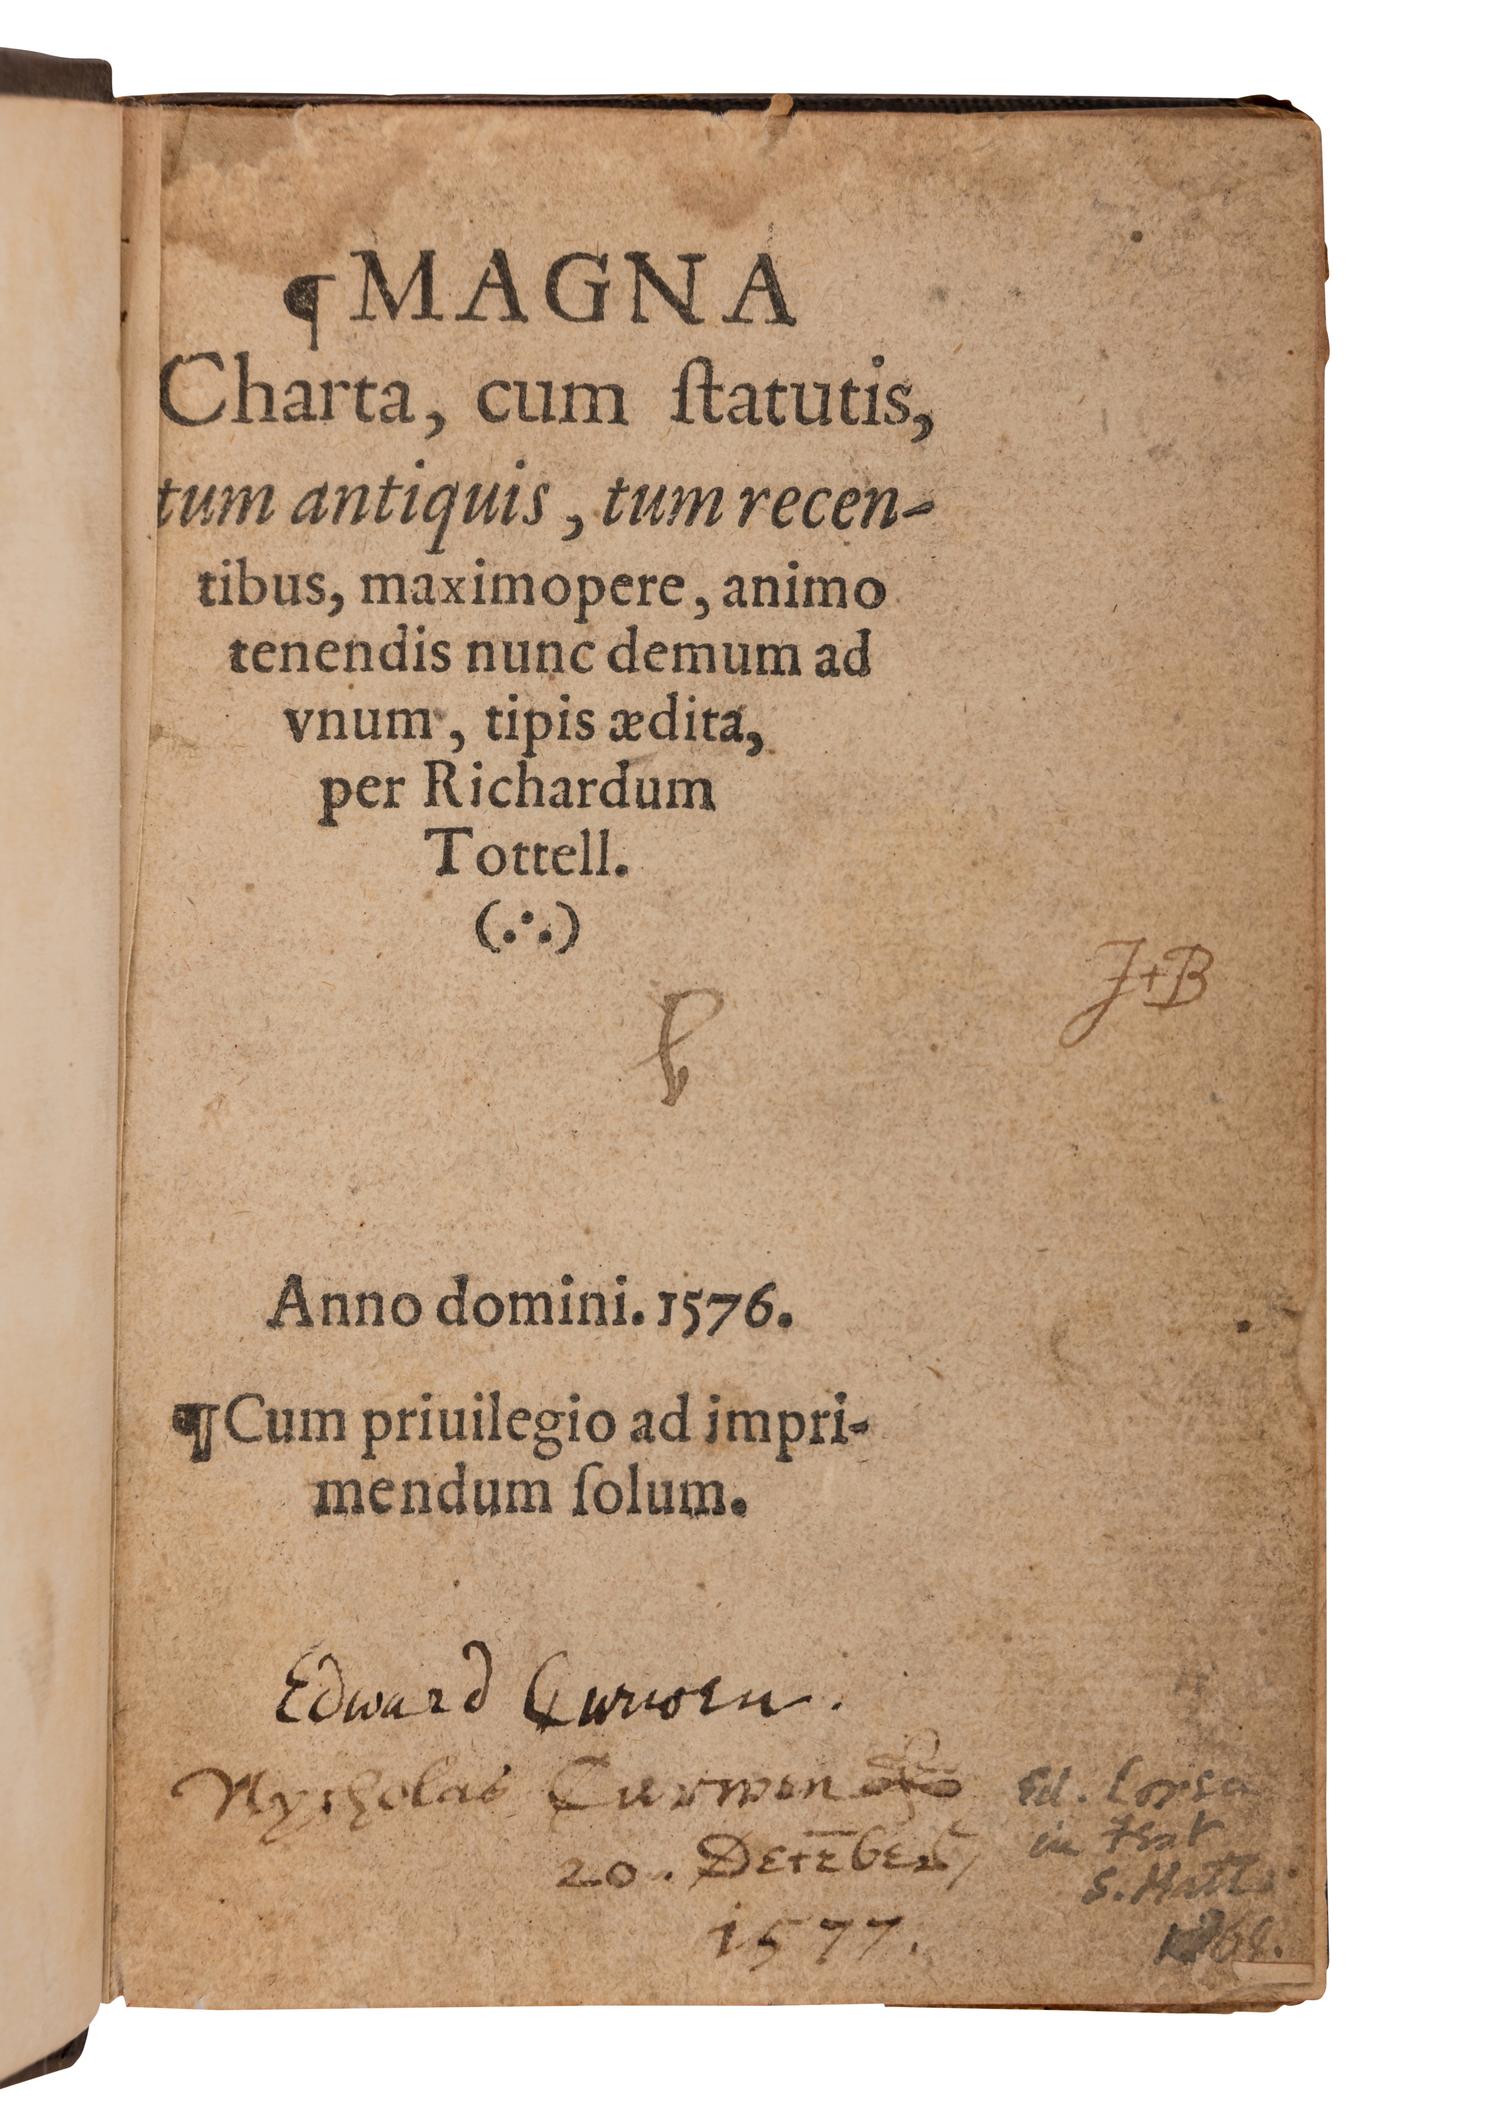 ¶MAGNA
Charta, cum ſtatutis,
tum antiquis, tum recen-
tibus, maximopere, animo
tenendis nunc demum ad
vnum, tipis ædita,
per Richardum
Tottell.
(∴)
J+B
Anno domini. 1576.
¶Cum priuilegio ad impri-
mendum ſolum.
Edward Curwen.
Nycholas Curwen
20. Decēber
1577.
in
S.